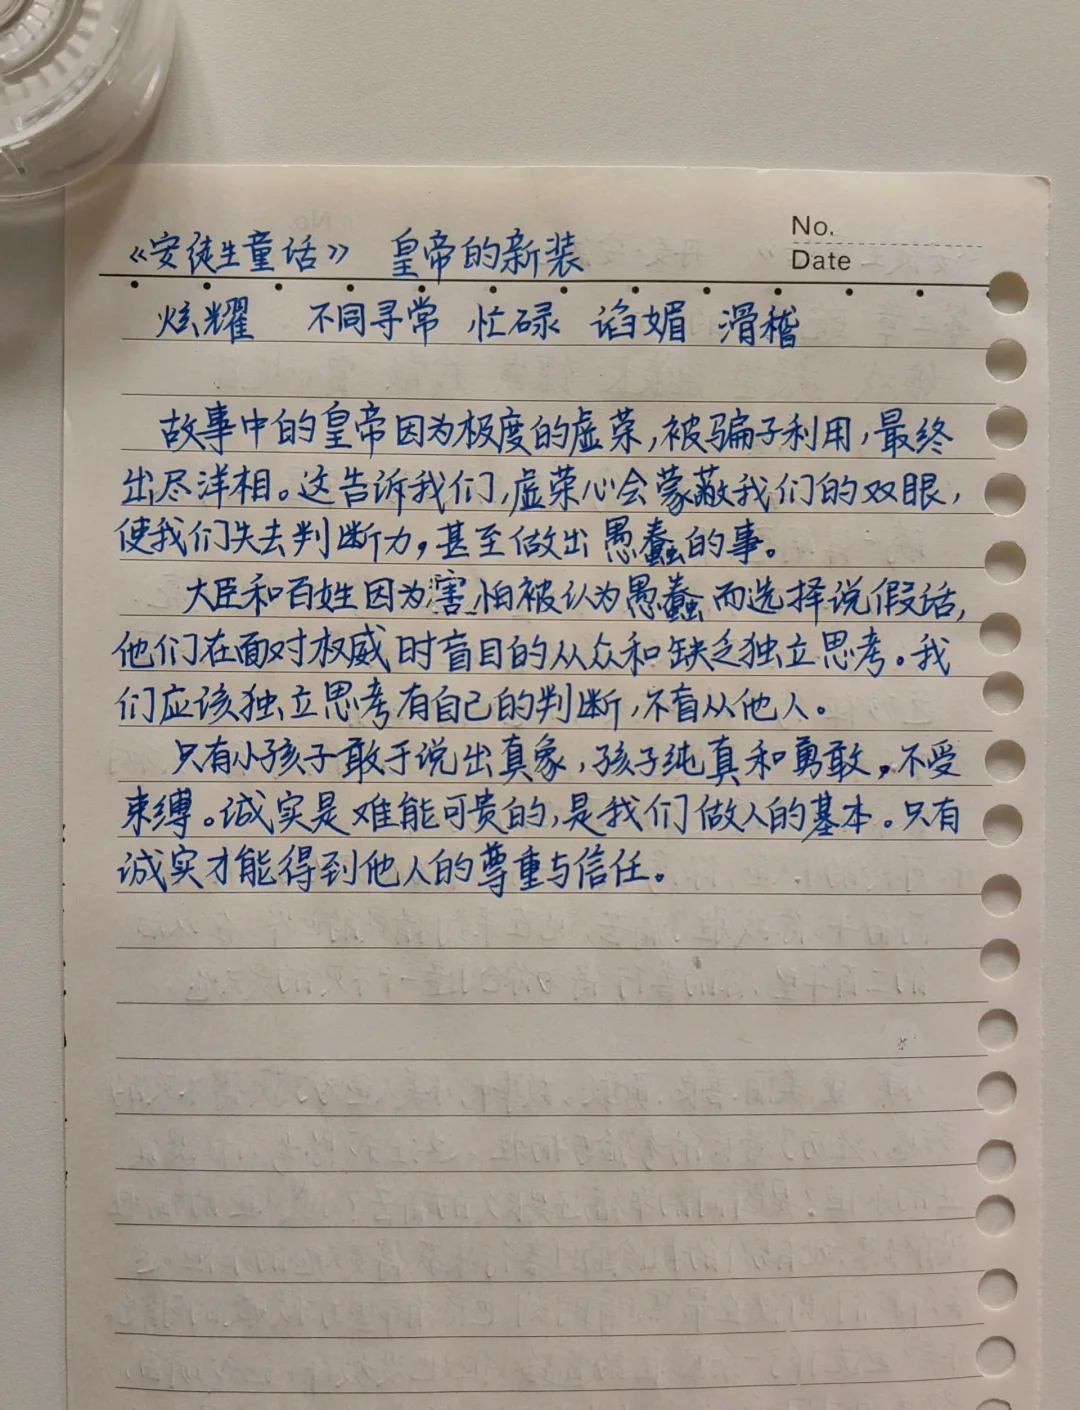 No.
《安徒生童话》 皇帝的新装
Date
炫耀 不同寻常 忙碌 谄媚 滑稽
故事中的皇帝因为极度的虚荣,被骗子利用,最终
出尽洋相。这告诉我们,虚荣心会蒙蔽我们的双眼,
使我们失去判断力,甚至做出愚蠢的事。
大臣和百姓因为害怕被认为愚蠢而选择说假话,
他们在面对权威时盲目的从众和缺乏独立思考。我
们应该独立思考有自己的判断,不盲从他人。
只有小孩子敢于说出真象,孩子纯真和勇敢,不受
束缚。诚实是难能可贵的,是我们做人的基本。只有
诚实才能得到他人的尊重与信任。